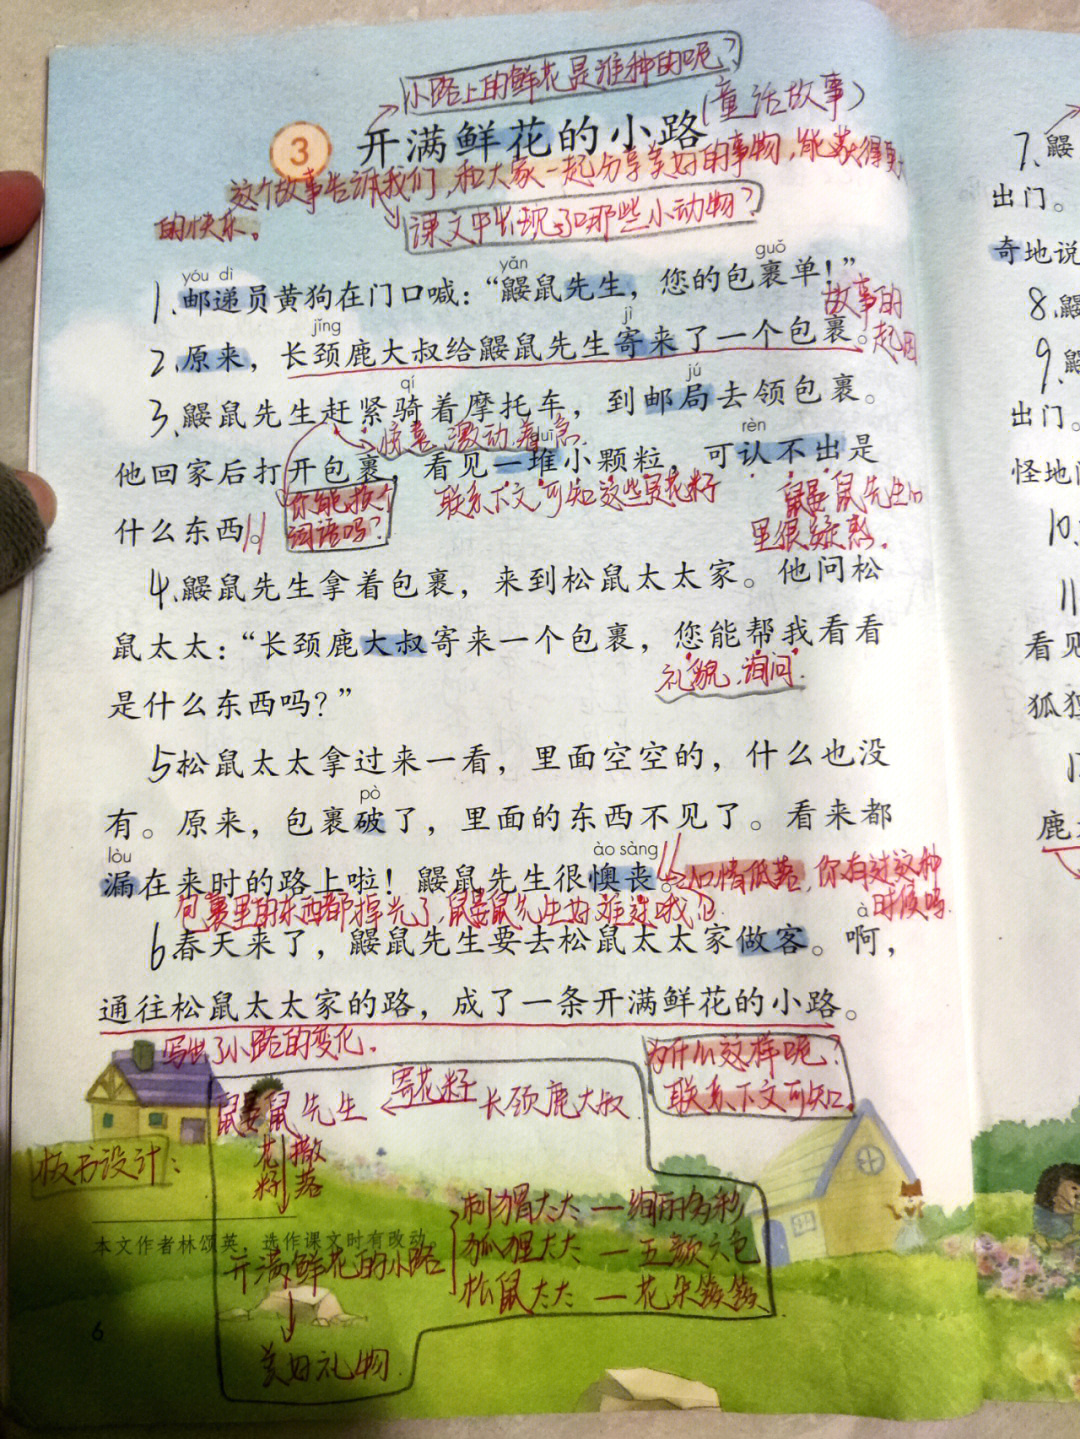 小路上的鲜花是谁种的呢?
(童话故事)
3 开满鲜花的小路
这个故事告诉我们,和大家一起分享美好的事物,能获得更大
的快乐。
课文中出现了哪些小动物?
yóu dì yǎn guǒ
1.邮递员黄狗在门口喊:“鼹鼠先生,您的包裹单!”
故事的
起因
jǐng jì
2.原来,长颈鹿大叔给鼹鼠先生寄来了一个包裹。
qí jú
3.鼹鼠先生赶紧骑着摩托车,到邮局去领包裹。
惊喜、激动、着急
duī rèn
他回家后打开包裹,看见一堆小颗粒,可认不出是
你能换个
词语吗?
联系下文可知这些是花籽
鼹鼠先生心
里很疑惑.
什么东西。
4.鼹鼠先生拿着包裹,来到松鼠太太家。他问松
鼠太太:“长颈鹿大叔寄来一个包裹,您能帮我看看
礼貌、询问.
是什么东西吗?”
5松鼠太太拿过来一看,里面空空的,什么也没
pò
有。原来,包裹破了,里面的东西不见了。看来都
lòu ào sàng
漏在来时的路上啦!鼹鼠先生很懊丧。
心情低落,你有过这种
时候吗.
包裹里的东西都掉光了,鼹鼠先生好难过哦!
à
6春天来了,鼹鼠先生要去松鼠太太家做客。啊,
通往松鼠太太家的路,成了一条开满鲜花的小路。
写出了小路的变化.
为什么这样呢?
联系下文可知.
板书设计:
鼹鼠先生 寄花籽 长颈鹿大叔
花籽 撒落
刺猬太太—绚丽多彩
狐狸太太—五颜六色
松鼠太太—花朵簇簇
本文作者林颂英,选作课文时有改动。
开满鲜花的小路
美好礼物
6
7、鼹
出门。
奇地说
8.鼹
9、鼹
出门。
怪地问
10.
11
看见
狐狸
鹿